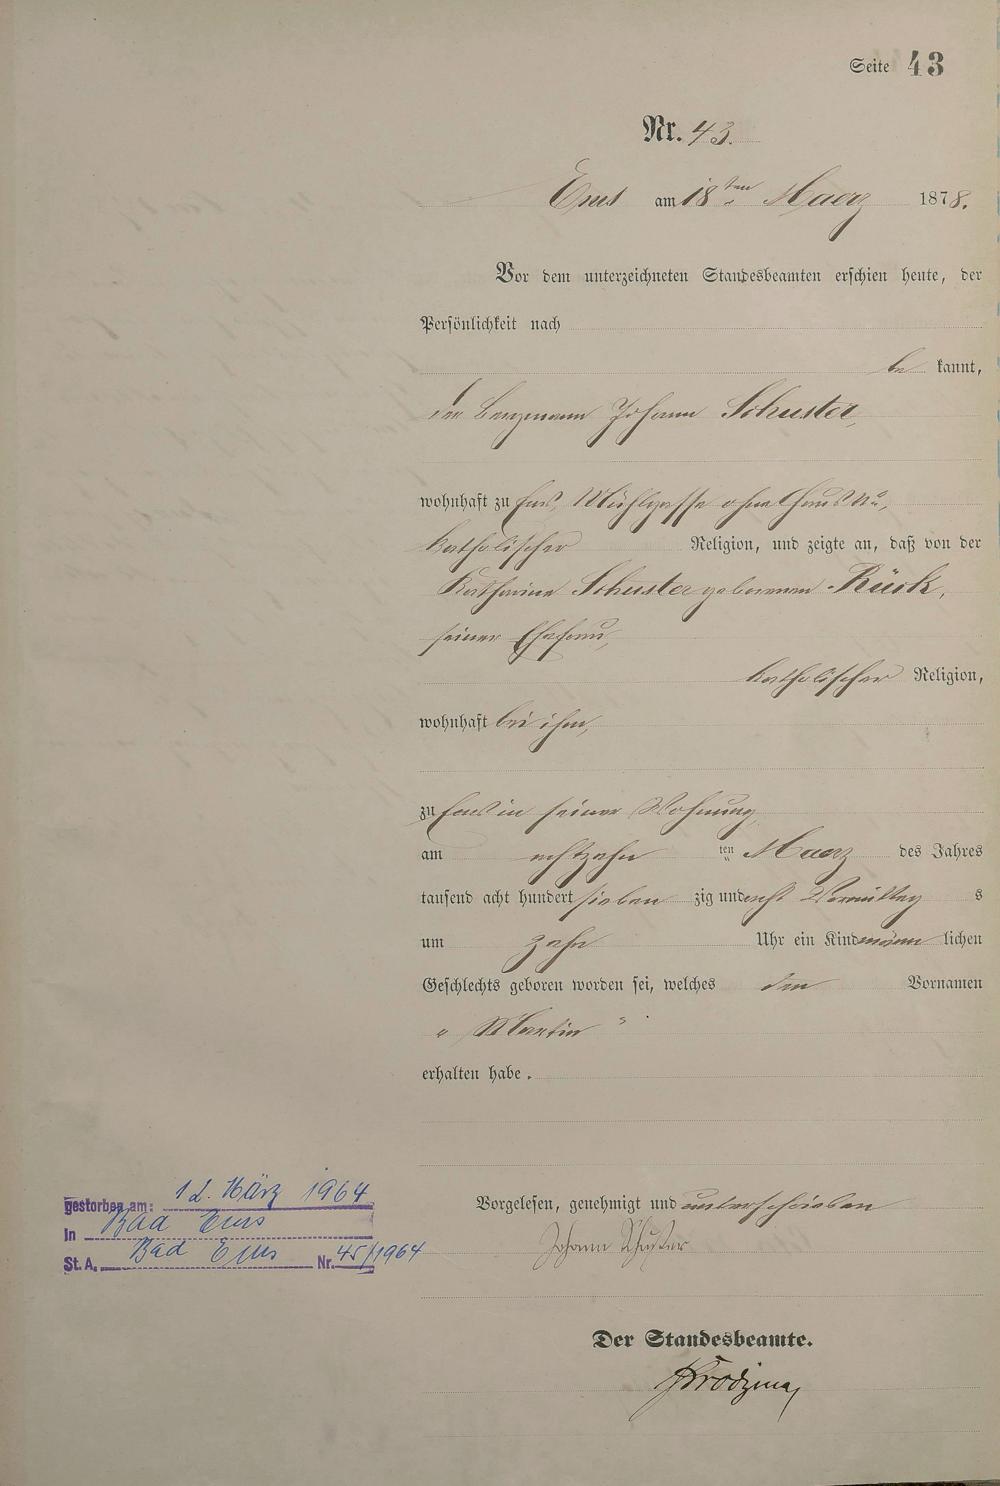 Seite 43
Nr. 43.
Ems am 18ten Maerz 1878.
Vor dem unterzeichneten Standesbeamten erschien heute, der
Persönlichkeit nach
be kannt,
der Bergmann Johann Schuster,
wohnhaft zu Ems, Mühlgasse ohne Haus No,
katholischer Religion, und zeigte an, daß von der
Katharina Schuster geborenen Rück,
seiner Ehefrau,
katholischer Religion,
wohnhaft bei ihm,
zu Ems in seiner Wohnung
am achtzehn ten Maerz des Jahres
tausend acht hundert sieben zig und acht Vormittag s
um zehn Uhr ein Kind männ lichen
Geschlechts geboren worden sei, welches den Vornamen
„ Martin "
erhalten habe.
Vorgelesen, genehmigt und unterschrieben
Johann Schuster
Der Standesbeamte.
gestorben am: 12. März 1964
in Bad Ems
St. A. Bad Ems Nr. 45/1964